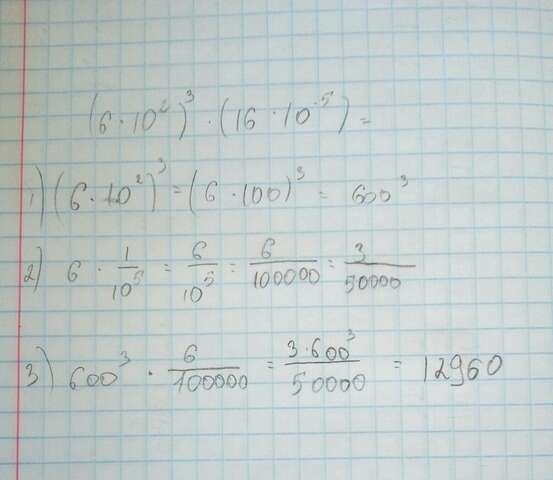 (6 · 10²)³ · (16 · 10⁻⁵) =
1) (6 · 10²)³ = (6 · 100)³ = 600³
2) 6 · 1/10⁵ = 6/10⁵ = 6/100000 = 3/50000
3) 600³ · 6/100000 = 3·600³/50000 = 12960